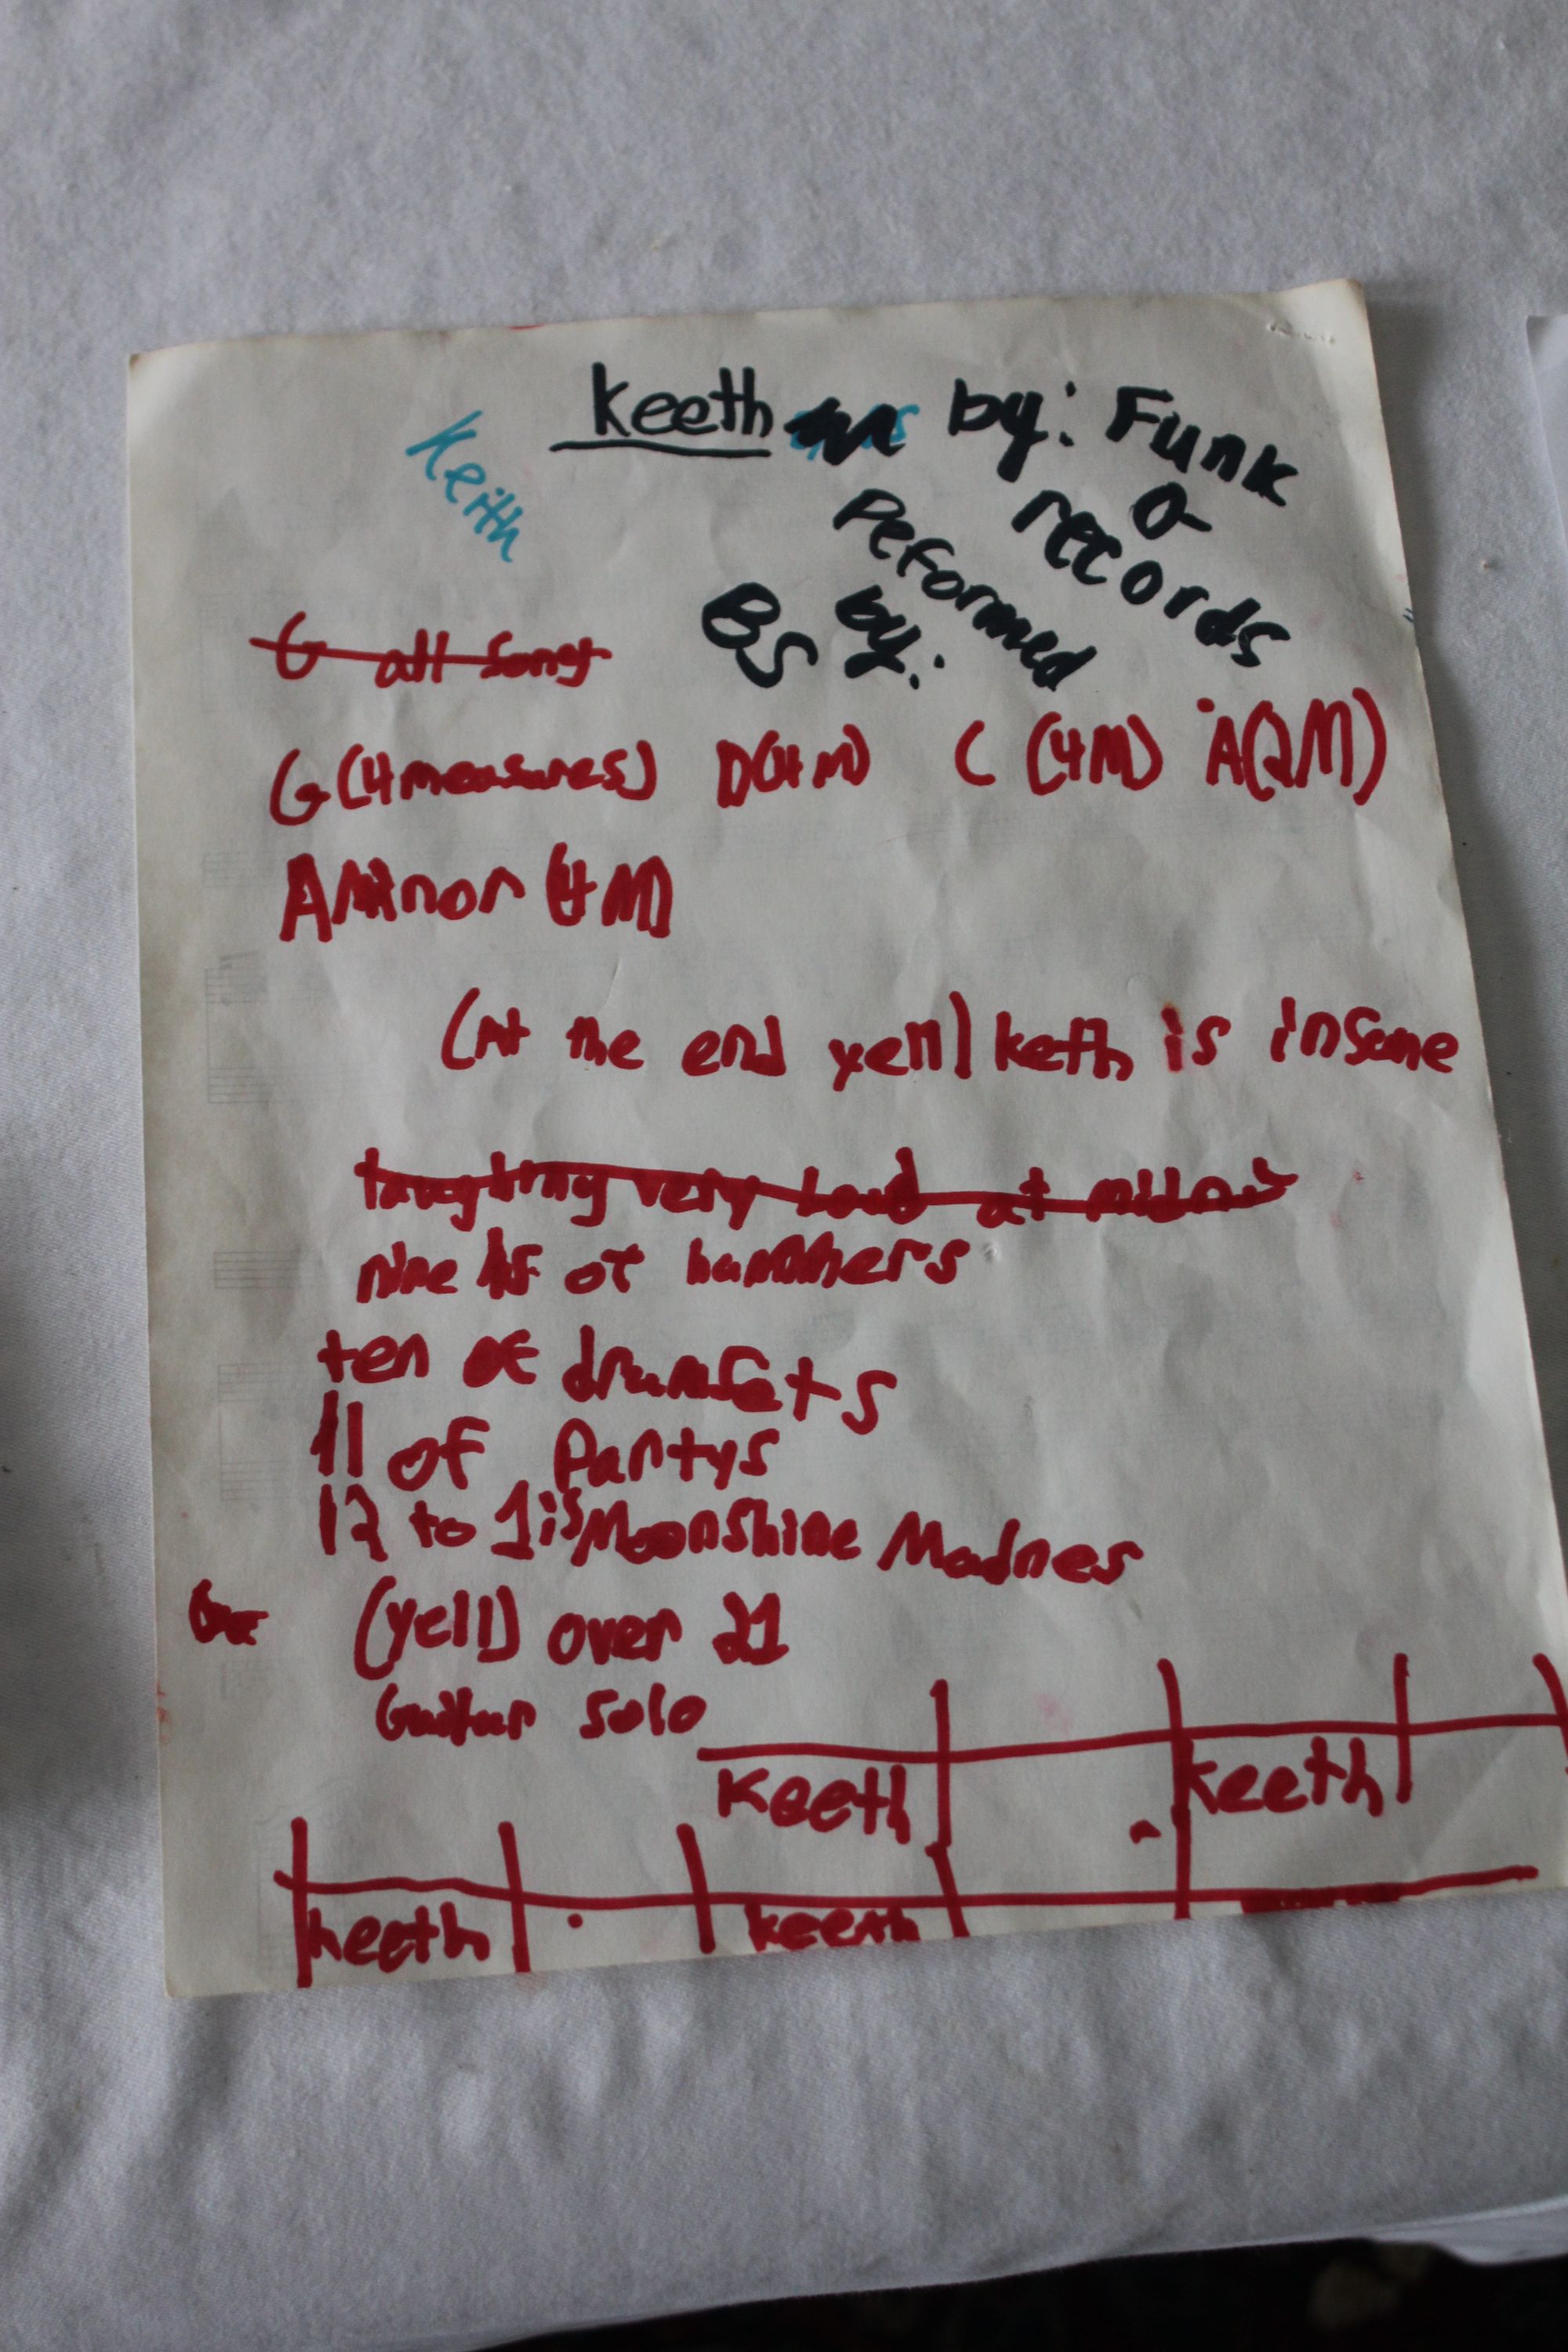 Keeth by: Funk
O
records
Keith
Peformed
by:
BS
G all song
G (4 measures) D (4M) C (4M) A (2M)
A Minor (4M)
(At the end yell) keth is insane
laughing very loud at
nine of hammers
ten of drumsets
11 of Partys
12 to 1 is Moonshine Madnes
(yell) over 21
Guitar solo
Keeth keeth
keeth keeth